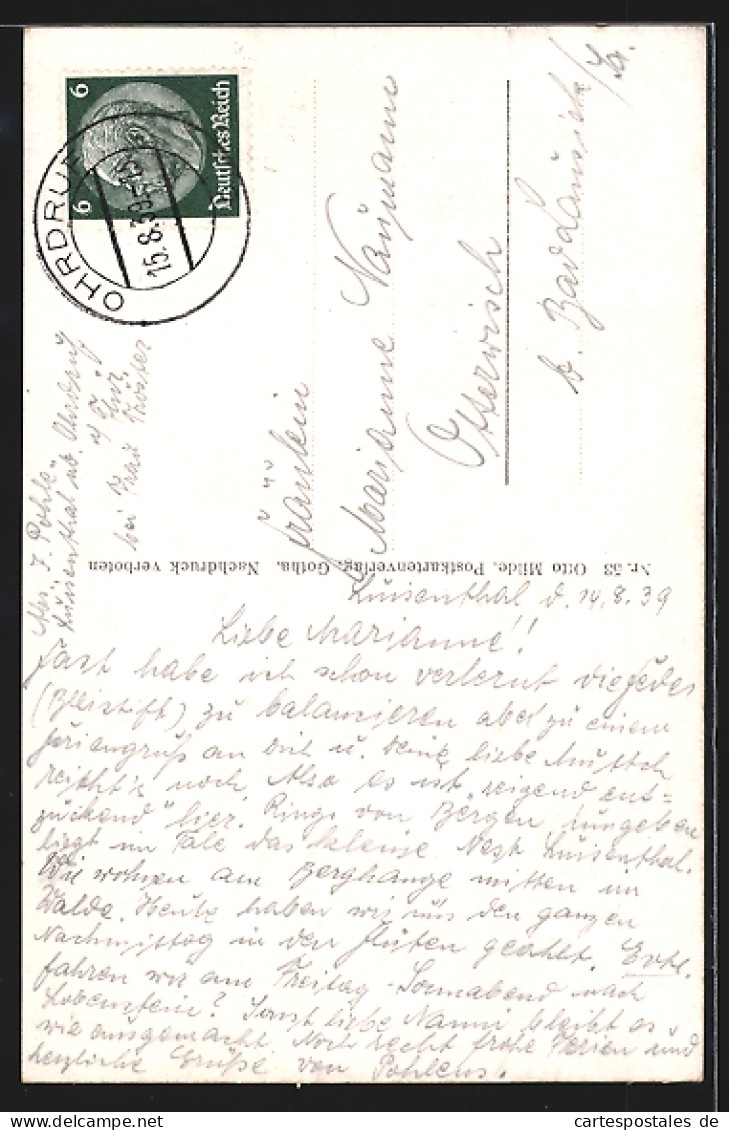 Deutsches Reich
6 6
OHRDRUF
15.8.39
Fräulein
Marianne Naumann
Otterwisch
b. Bad Lausick /Sa.
Abs. Pohle
Luisenthal üb. Ohrdruf
bei Frau
Nr. 53 Otto Milde, Postkartenverlag, Gotha. Nachdruck verboten
Luisenthal d. 14.8.39
Liebe Marianne!
Fast habe ich schon verlernt die Feder
(Bleistift) zu balanzieren aber zu einem
Feriengruß an Dich u. Deine liebe Mutsch
reicht's noch. Also es ist "reizend ent=
zückend" hier. Rings von Bergen umgeben
liegt im Tale das kleine Nest Luisenthal.
Wir wohnen am Berghange mitten im
Walde. Heute haben wir uns den ganzen
Nachmittag in den Fluten geaalt. Evtl.
fahren wir am Freitag - Sonnabend nach
Lobenstein? Sonst liebe Nanni bleibt es
wie ausgemacht. Noch recht frohe Ferien und
herzliche Grüße von Pohlens.
© www.delcampe.net
cartespostales de